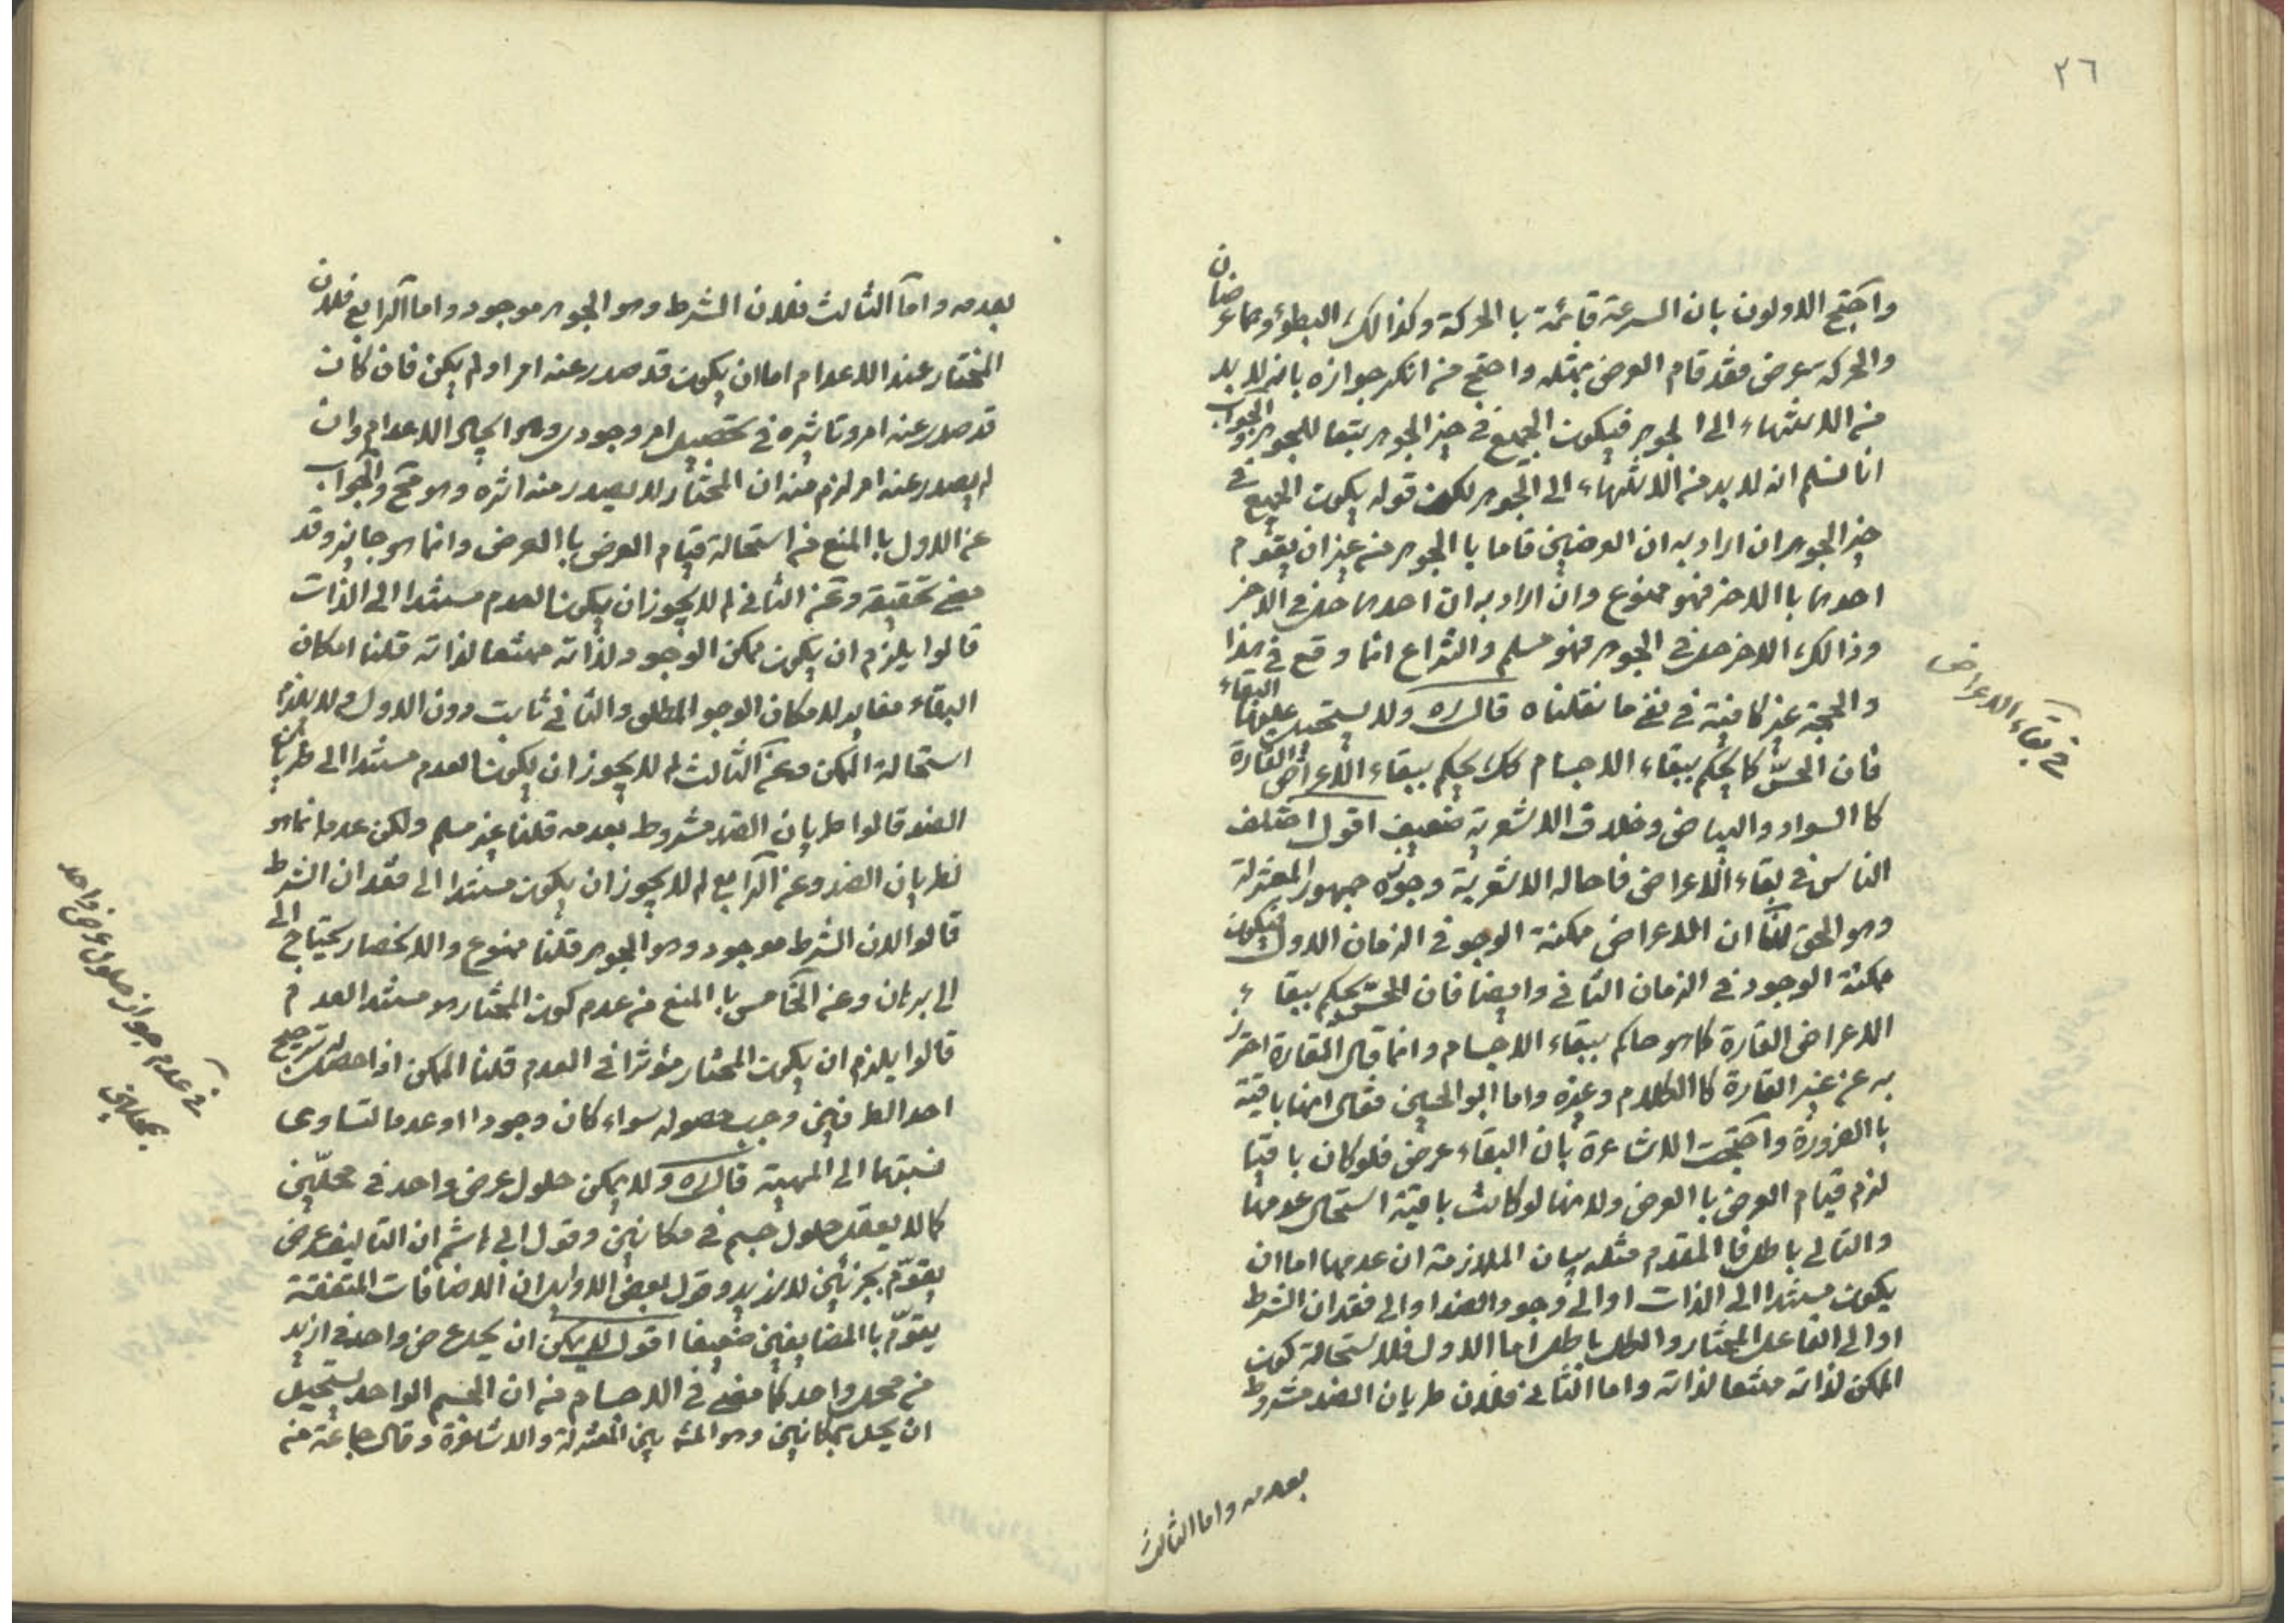 ٢٦
واحتج الاولون بان السرعة قائمة با الحركة وكذالك البطؤ وهما عرضان
والحركه عرض فقد قام العرض بمثله واحتج من انكر جوازه بانه لا بد
من الانتهاء الى الجوهر فيكون الجميع فى حيز الجوهر تبعا للجوهر والجواب
انا نسلم انه لا بد من الانتهاء الى الجوهر لكن قوله يكون الجميع فى
حيز الجوهر ان اراد به ان العرضين قاما با الجوهر من غير ان يقوم
احدهما با الاخر فهو ممنوع وان اراد به ان احدهما حل فى الاخر
وذالك الاخر حل فى الجوهر فهو مسلم والنزاع انما وقع فى هذا
والحجة غير كافية فى نفى ما نقلناه قال ره ولا يستحيل عليها البقاء
فان الحسّ كما يحكم ببقاء الاجسام كك يحكم ببقاء الاعراض القارة
كا السواد والبياض وخلاف الاشعرية ضعيف اقول اختلف
الناس فى بقاء الاعراض فاحاله الاشعرية وجوزه جمهور المعتزلة
وهو الحق لنا ان الاعراض ممكنة الوجود فى الزمان الاول فيكون
ممكنة الوجود فى الزمان الثانى وايضا فان الحسّ يحكم ببقاء
الاعراض القارة كما هو حاكم ببقاء الاجسام وانما قال القارة احترز
به عن غير القارة كا الكلام وغيره واما ابو الحسين فقال انها باقية
با الضرورة واحتجت الاشاعرة بان البقاء عرض فلو كان باقيا
لزم قيام العرض با العرض ولانها لو كانت باقية استحال عدمها
والتالى باطل فا المقدم مثله بيان الملازمة ان عدمها اما ان
يكون مستندا الى الذات او الى وجود الضد او الى فقدان الشرط
او الى الفاعل المختار والكل باطل اما الاول فلاستحالة كون
الممكن لذاته ممتنعا لذاته واما الثانى فلان طريان الضد مشروط
بعدمه واما الثالث
فى بقاء الاعراض
بعدمه واما الثالث فلان الشرط وهو الجوهر موجود واما الرابع فلان
المختار عند الاعدام اما ان يكون قد صدر عنه امر او لم يكن فان كان
قد صدر عنه امر وتاثيره فى تحصيل امر وجودى وهو ايجاد لا اعدام وان
لم يصدر عنه امر لزم منه ان المختار لا يصدر منه اثره وهو مح والجواب
عن الاول با المنع من استحالة قيام العرض با العرض وانما هو جايز وقد
مضى تحقيقه وعن الثانى لم لا يجوز ان يكون العدم مستندا الى الذات
قالوا يلزم ان يكون ممكن الوجود لذاته ممتنعا لذاته قلنا امكان
البقاء مغاير لامكان الوجو المطلق والثانى ثابت دون الاول ولا يلزم منه
استحالة الممكن وعن الثالث لم لا يجوز ان يكون العدم مستندا الى طريان
الضد قالوا طريان الضد مشروط بعدمه قلنا غير مسلم ولكن عدمه انما هو
لطريان الضد وعن الرابع لم لا يجوز ان يكون مستندا الى فقدان الشرط
قالوا لان الشرط موجود وهو الجوهر قلنا ممنوع والانحصار يحتاج الى
الى برهان وعن الخامس با المنع من عدم كون المختار هو مستند العدم
قالوا يلزم ان يكون المختار مؤثرا فى العدم قلنا الممكن اذا حصل ترجيح
احد الطرفين وجب حصوله سواء كان وجودا او عدما لتساوى
نسبتهما الى المهية قال ره ولا يمكن حلول عرض واحد فى محلّين
كما لا يعقل حلول جسم فى مكانين وقول ابى هاشم ان التاليف عرض
يقوّم بجزئين لا ازيد وقول بعض الاوايل ان الاضافات المتفقة
يقوّم با المضايفين ضعيفا اقول لا يمكن ان يحل عرض واحد فى ازيد
من محل واحد كما مضى فى الاجسام من ان الجسم الواحد يستحيل
ان يحل بمكانين وهو المش بين المعتزلة والاشاعرة وقال جماعة من
فى عدم جواز حلول عرض واحد
بمحلين